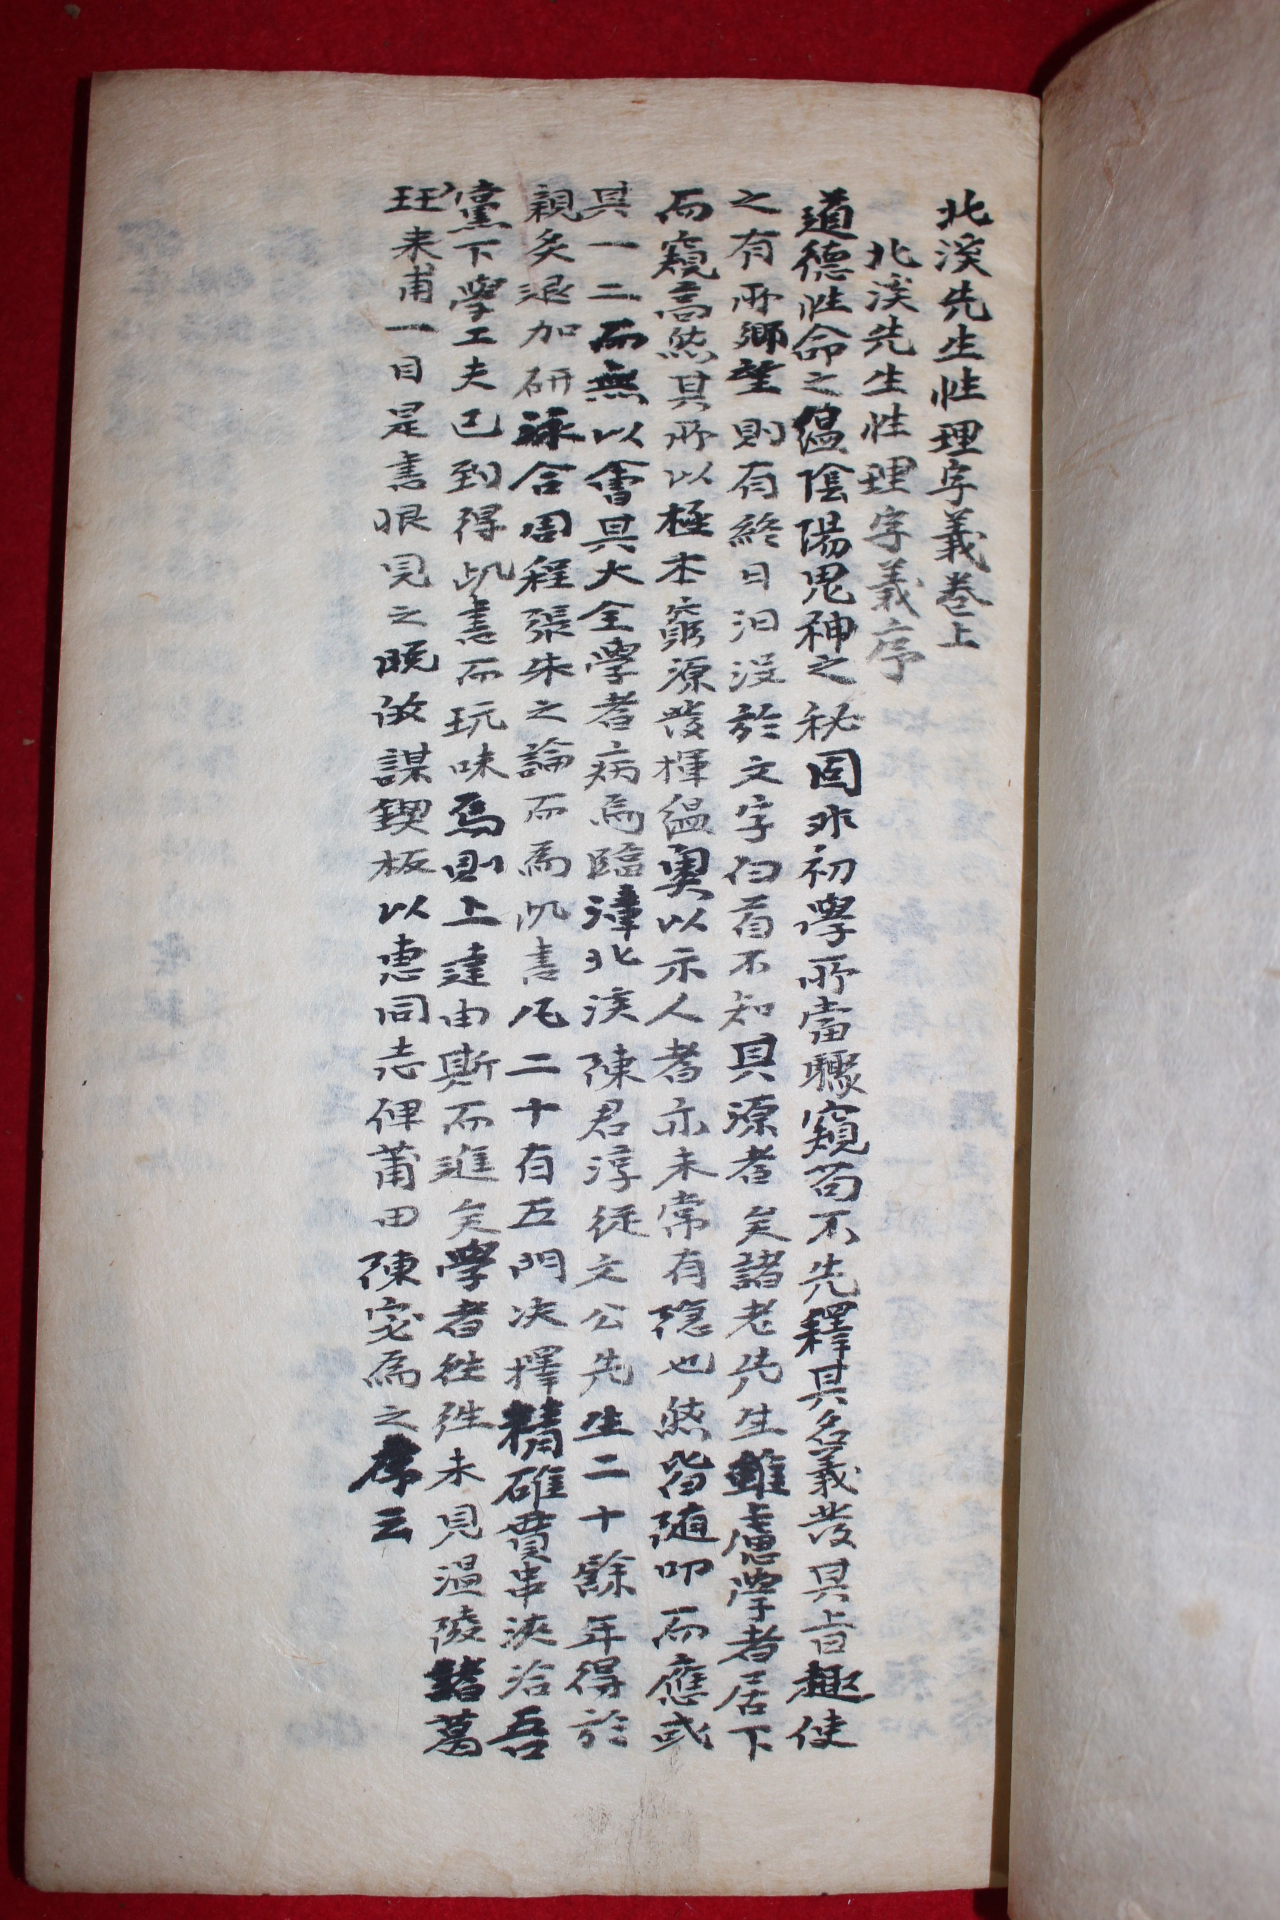 北溪先生性理字義卷上
北溪先生性理字義序
道德性命之縕陰陽鬼神之秘固非初學所當驟窺苟不先釋其名義發其旨趣使
之有所鄉望則有終日汩沒於文字白首不知其源者矣諸老先生雖慮學者居下
而窺高然其所以極本窮源發揮縕奧以示人者亦未常有隐也然皆随叩而應或
具一二而無以會其大全學者病焉臨漳北溪陳君淳從文公先生二十餘年得於
親炙退加研詠合周程張朱之論而爲此書凡二十有五門決擇精確貫串浹洽吾
黨下學工夫已到得此書而玩味焉則上達由斯而進矣學者徃徃未見溫陵諸葛
珏来甫一目是書恨見之晚故謀鍥板以惠同志俾莆田陳宓爲之序云